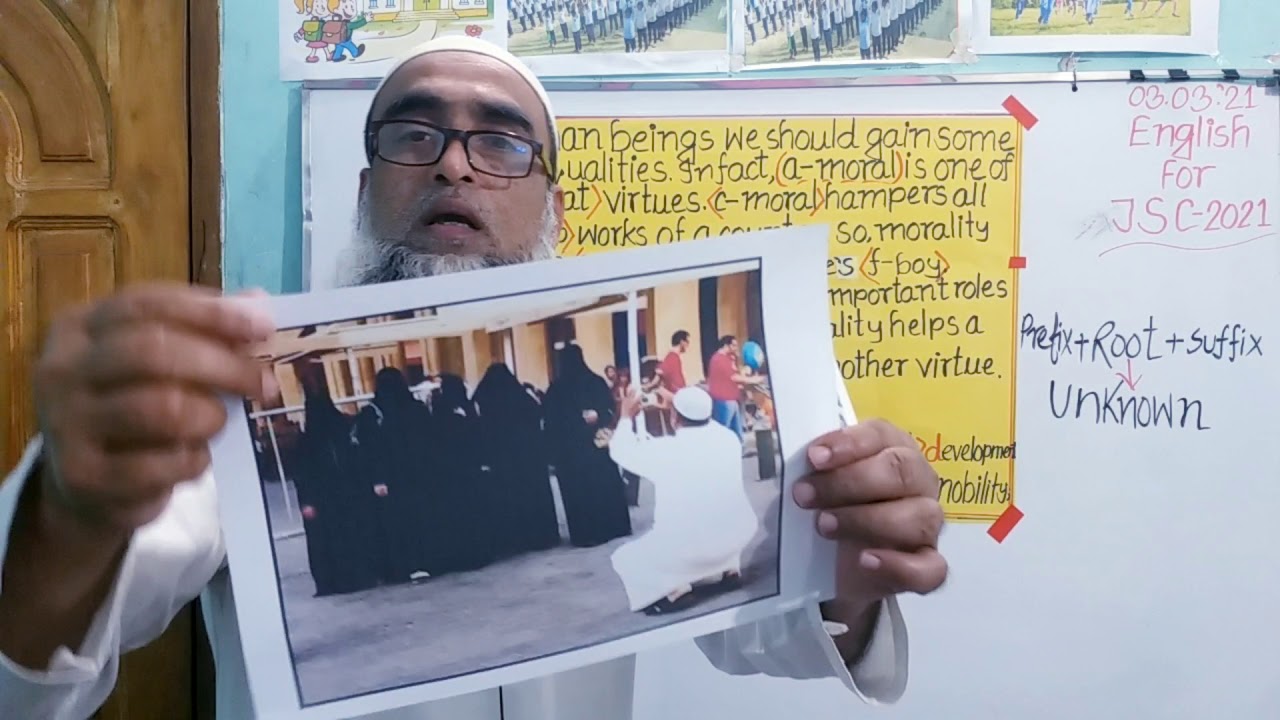 an beings we should gain some
ualities. In fact, (a-moral) is one of
at> virtues. <c-moral> hampers all
works of a so, morality
es <f-boy>
mportant roles
lity helps a
other virtue.
>development
nobility.
03.03.'21
English
For
JSC-2021
Prefix+Root+Suffix
Unknown